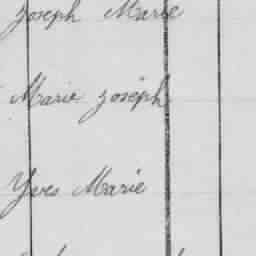 Joseph Marie
Marie Joseph
Yves Marie